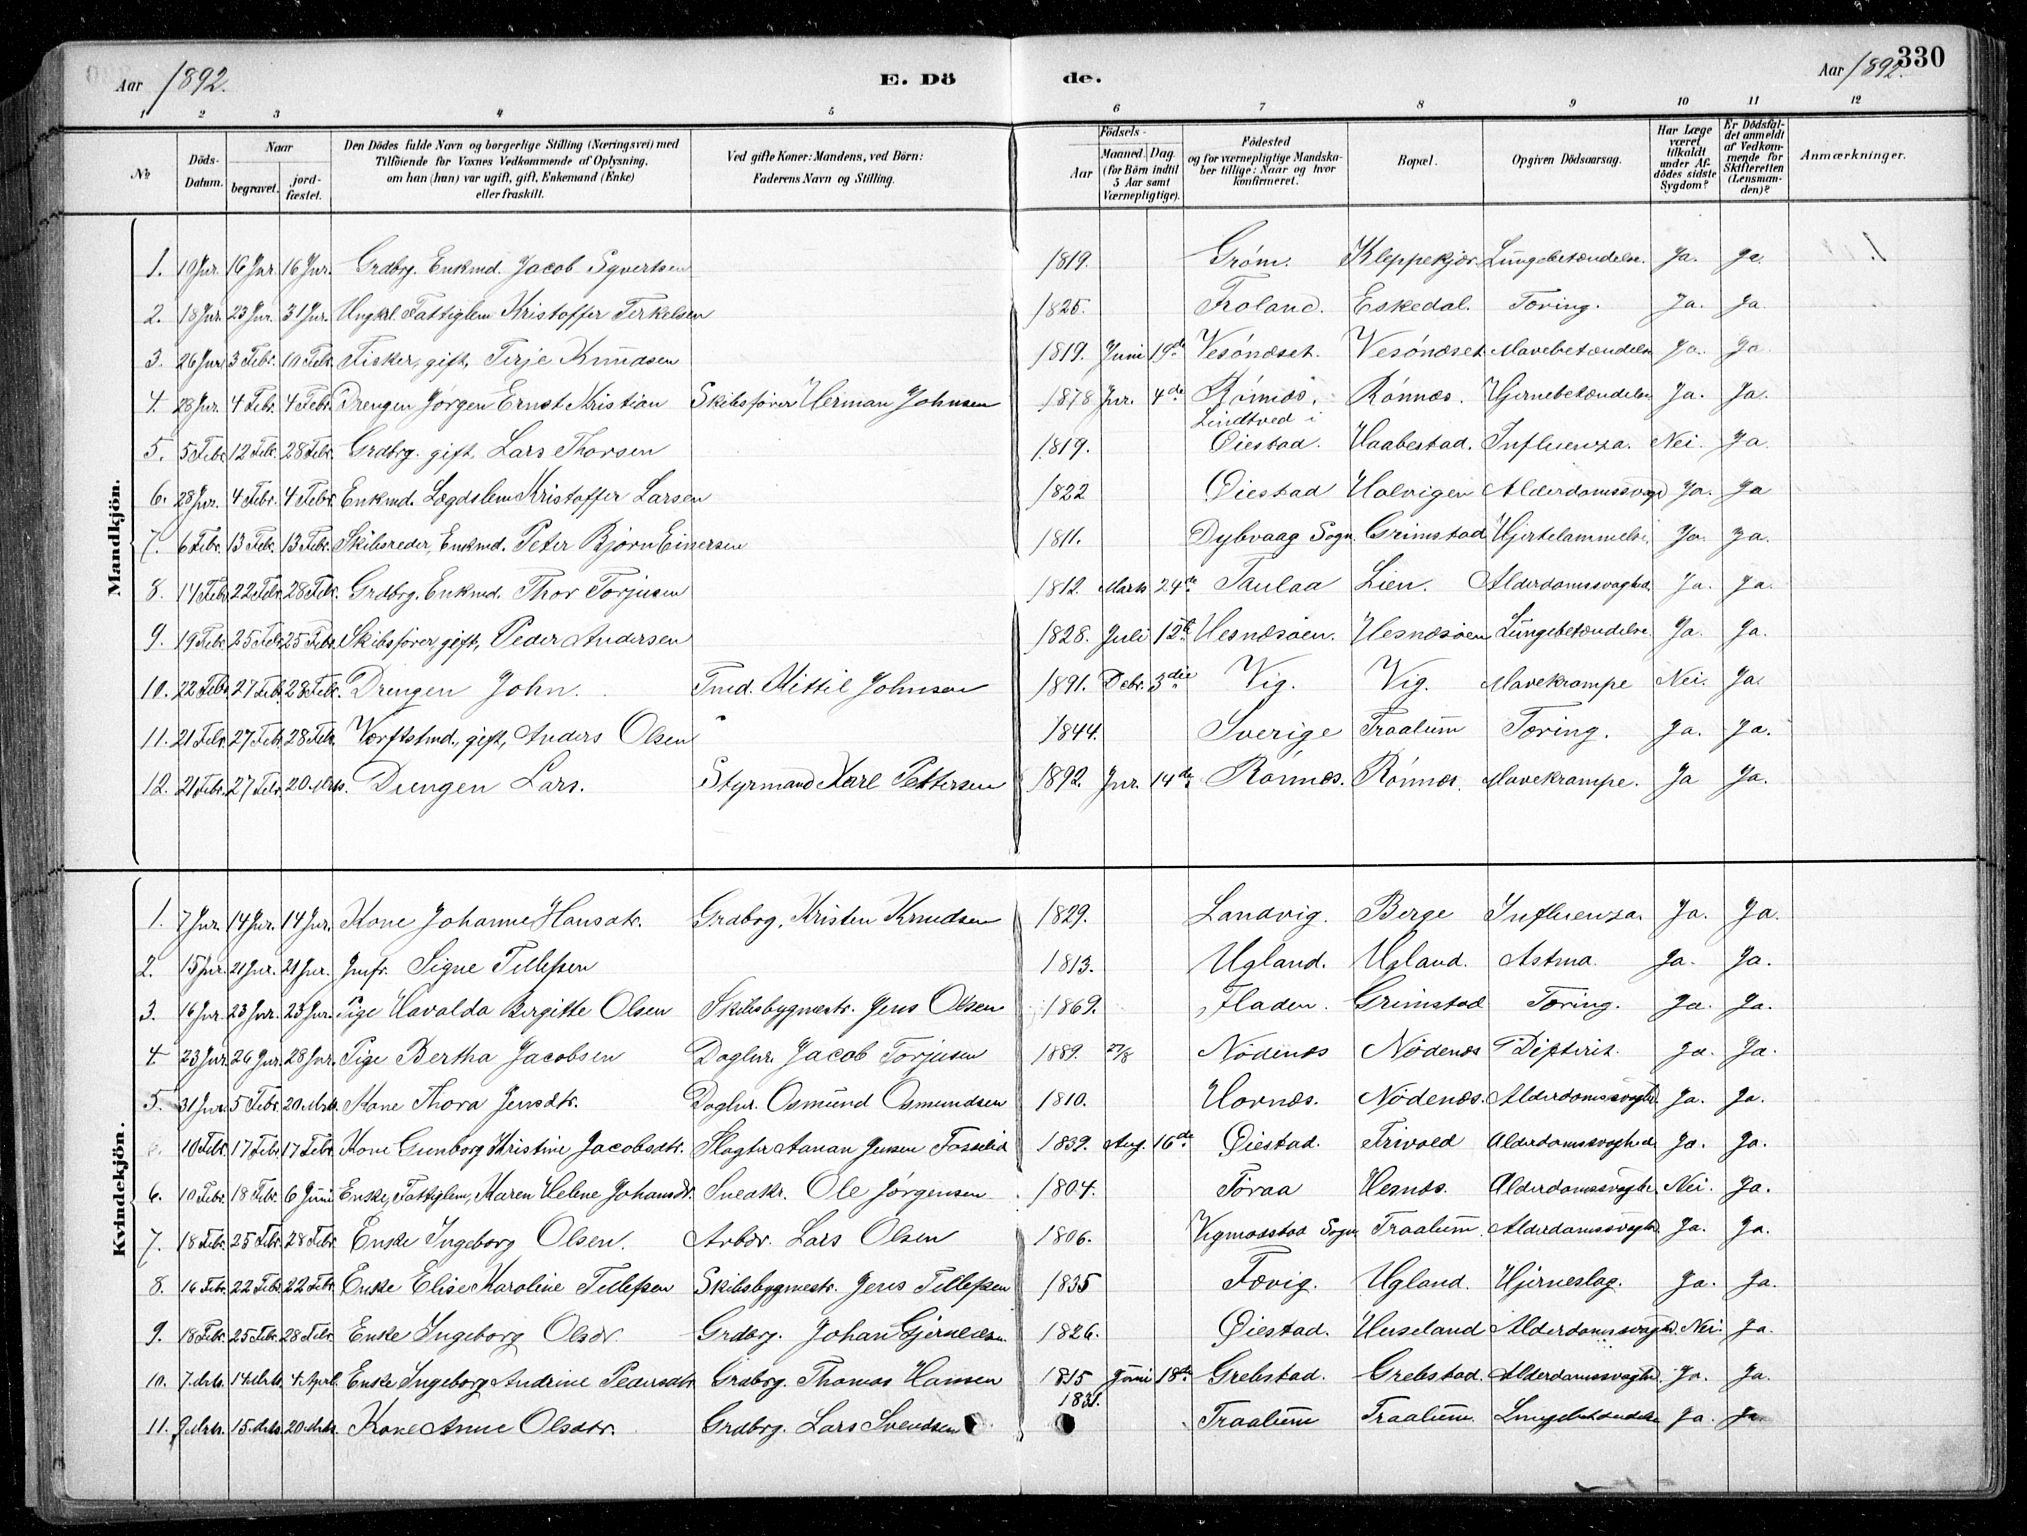 Aar 1892.
E. Dö
de.
Aar 1892.
330
1 2 3 4 5 6 7 8 9 10 11 12
№
Döds-Datum.
Naar
begravet.
jord-fæstet.
Den Dödes fulde Navn og borgerlige Stilling (Næringsvei) med
Tilföiende for Voxnes Vedkommende af Oplysning,
om han (hun) var ugift, gift, Enkemand (Enke)
eller fraskilt.
Ved gifte Koner: Mandens, ved Börn:
Faderens Navn og Stilling.
Födsels-
Aar
Maaned. Dag.
(for Börn indtil
5 Aar samt
Værnepligtige).
Födested
og for værnepligtige Mandska-
ber tillige: Naar og hvor
konfirmeret.
Bopæl.
Opgiven Dödsaarsag.
Har Læge
været
tilkaldt
under Af-
dödes sidste
Sygdom?
Er Dödsfal-
det anmeldt
af Vedkom-
mende for
Skifteretten
(Lensman-
den)?
Anmærkninger.
Mandkjön.
1. 10 Jnr. 16 Jnr. 16 Jnr. Grdbrg. Enkmd. Jacob Syvertsen 1819. Grøm. Kleppekjær. Lungebetændelse. Ja. Ja.
2. 18 Jnr. 23 Jnr. 31 Jnr. Ungkl. Fattiglem Kristoffer Terkelsen 1825. Froland. Eskedal. Tæring. Ja. Ja.
3. 26 Jnr. 3 Febr. 10 Febr. Fisker, gift, Terje Knudsen 1819. Juni 19de Vesøndset. Vesøndset Mavebetændelse Ja. Ja
4. 28 Jnr. 4 Febr. 4 Febr. Drengen Jörgen Ernst Kristian Skibsfører Herman Johnsen 1878 Jnr. 4de Rönnes. Rönnes. Hjernebetændelse Ja. Ja.
5. 5 Febr. 12 Febr. 28 Febr. Grdbrg. gift, Lars Thorsen 1819. Lindtved i Øiestad. Haabestad. Influenza. Nei. Ja
6. 28 Jnr. 4 Febr. 4 Febr. Enkmd. Lægdslem Kristoffer Larsen 1822 Øiestad Holvigen Alderdomssvagh Ja. Ja
7. 6 Febr. 13 Febr. 13 Febr. Skibsreder, Enkmd. Peter Bjørn Einersen 1811. Dybvaag Sogn. Grimstad Hjertelammelse. Ja. Ja.
8. 14 Febr. 22 Febr. 28 Febr. Grdbrg. Enkmd. Thor Torjusen 1812. Marts 24de Taulaa Lien. Alderdomssvaghed. Ja. Ja.
9. 19 Febr. 25 Febr. 25 Febr. Skibsfører, gift, Peder Andersen 1828. Juli 12te Hesnæsøen. Hesnæsøen Lungebetændelse. Ja. Ja.
10. 22 Febr. 27 Febr. 28 Febr. Drengen John. Tmd. Kittil Johnsen 1891. Debr. 3die Vig. Vig. Mavekrampe Nei. Ja.
11. 21 Febr. 27 Febr. 28 Febr. Værftstmd., gift, Anders Olsen 1844. Sverige Traalum Tæring. Ja. Ja.
12. 21 Febr. 27 Febr. 20 Mrts. Drengen Lars. Styrmand Karl Pettersen 1892. Jnr. 14de Rönnes. Rönnes. Mavekrampe. Ja Ja.
Kvindekjön.
1. 7 Jnr. 14 Jnr. 14 Jnr. Kone Johanne Hansdtr. Grdbrg. Kristen Knudsen 1829. Landvig. Berge Influenza. Ja. Ja.
2. 15 Jnr. 21 Jnr. 21 Jnr. Jmfr. Signe Tellefsen 1813. Ugland. Ugland. Astma. Ja. Ja.
3. 16 Jnr. 23 Jnr. 23 Jnr. Pige Havalda Birgitte Olsen Skibsbygmestr. Jens Olsen 1869. Fladen. Grimstad Tæring. Ja. Ja.
4. 23 Jnr. 26 Jnr. 28 Jnr. Pige Bertha Jacobsen Daglnr. Jacob Torjusen 1889. 27/8 Nödenæs Nödenæs Difterit. Ja. Ja.
5. 31 Jnr. 5 Febr. 20 Mrts. Kone Thora Jensdtr. Daglnr. Osmund Osmundsen 1810. Hornæs. Nödenæs. Alderdomssvaghd. Ja. Ja.
10 Febr. 17 Febr. 17 Febr. Kone Gunborg Kristine Jacobsdtr. Slagter Aanan Jensen Fosselid 1839. Aug. 16de Øiestad. Frivold Alderdomssvaghed Ja. Ja.
6. 10 Febr. 18 Febr. 6 Juni Enke, Fattiglem, Karen Helene Johansdr. Snedkr. Ole Jørgensen 1804. Foraa Hesnæs. Alderdomssvaghe. Nei. Ja.
7. 18 Febr. 25 Febr. 28 Febr. Enke Ingeborg Olsen. Arbdr. Lars Olsen 1806. Vigmostad Sogn Traalum. Alderdomssvaghd Ja. Ja.
8. 16 Febr. 22 Febr. 22 Febr. Enke Elise Karoline Tellefsen Skibsbygmestr. Jens Tellefsen 1835 Fævig. Ugland. Hjerneslag. Ja. Ja.
9. 18 Febr. 25 Febr. 28 Febr. Enke Ingeborg Olsdr. Grdbrg. Johan 1826. Øiestad. Herseland Alderdomssvaghd. Nei. Ja.
10. 7 Mrts. 14 Mrts. 4 April. Enke Ingeborg Andrine Pedersdtr. Grdbrg. Thomas Hansen 1815 Juni 18de Grebstad. Grebstad. Alderdomssvaghd. Ja. Ja.
11. 9 Mrts. 15 Mrts. 20 Mrts. Kone Anne Olsdtr. Grdbrg. Lars Svendsen 1831. Traalum Traalum. Lungebetændelse Ja. Ja